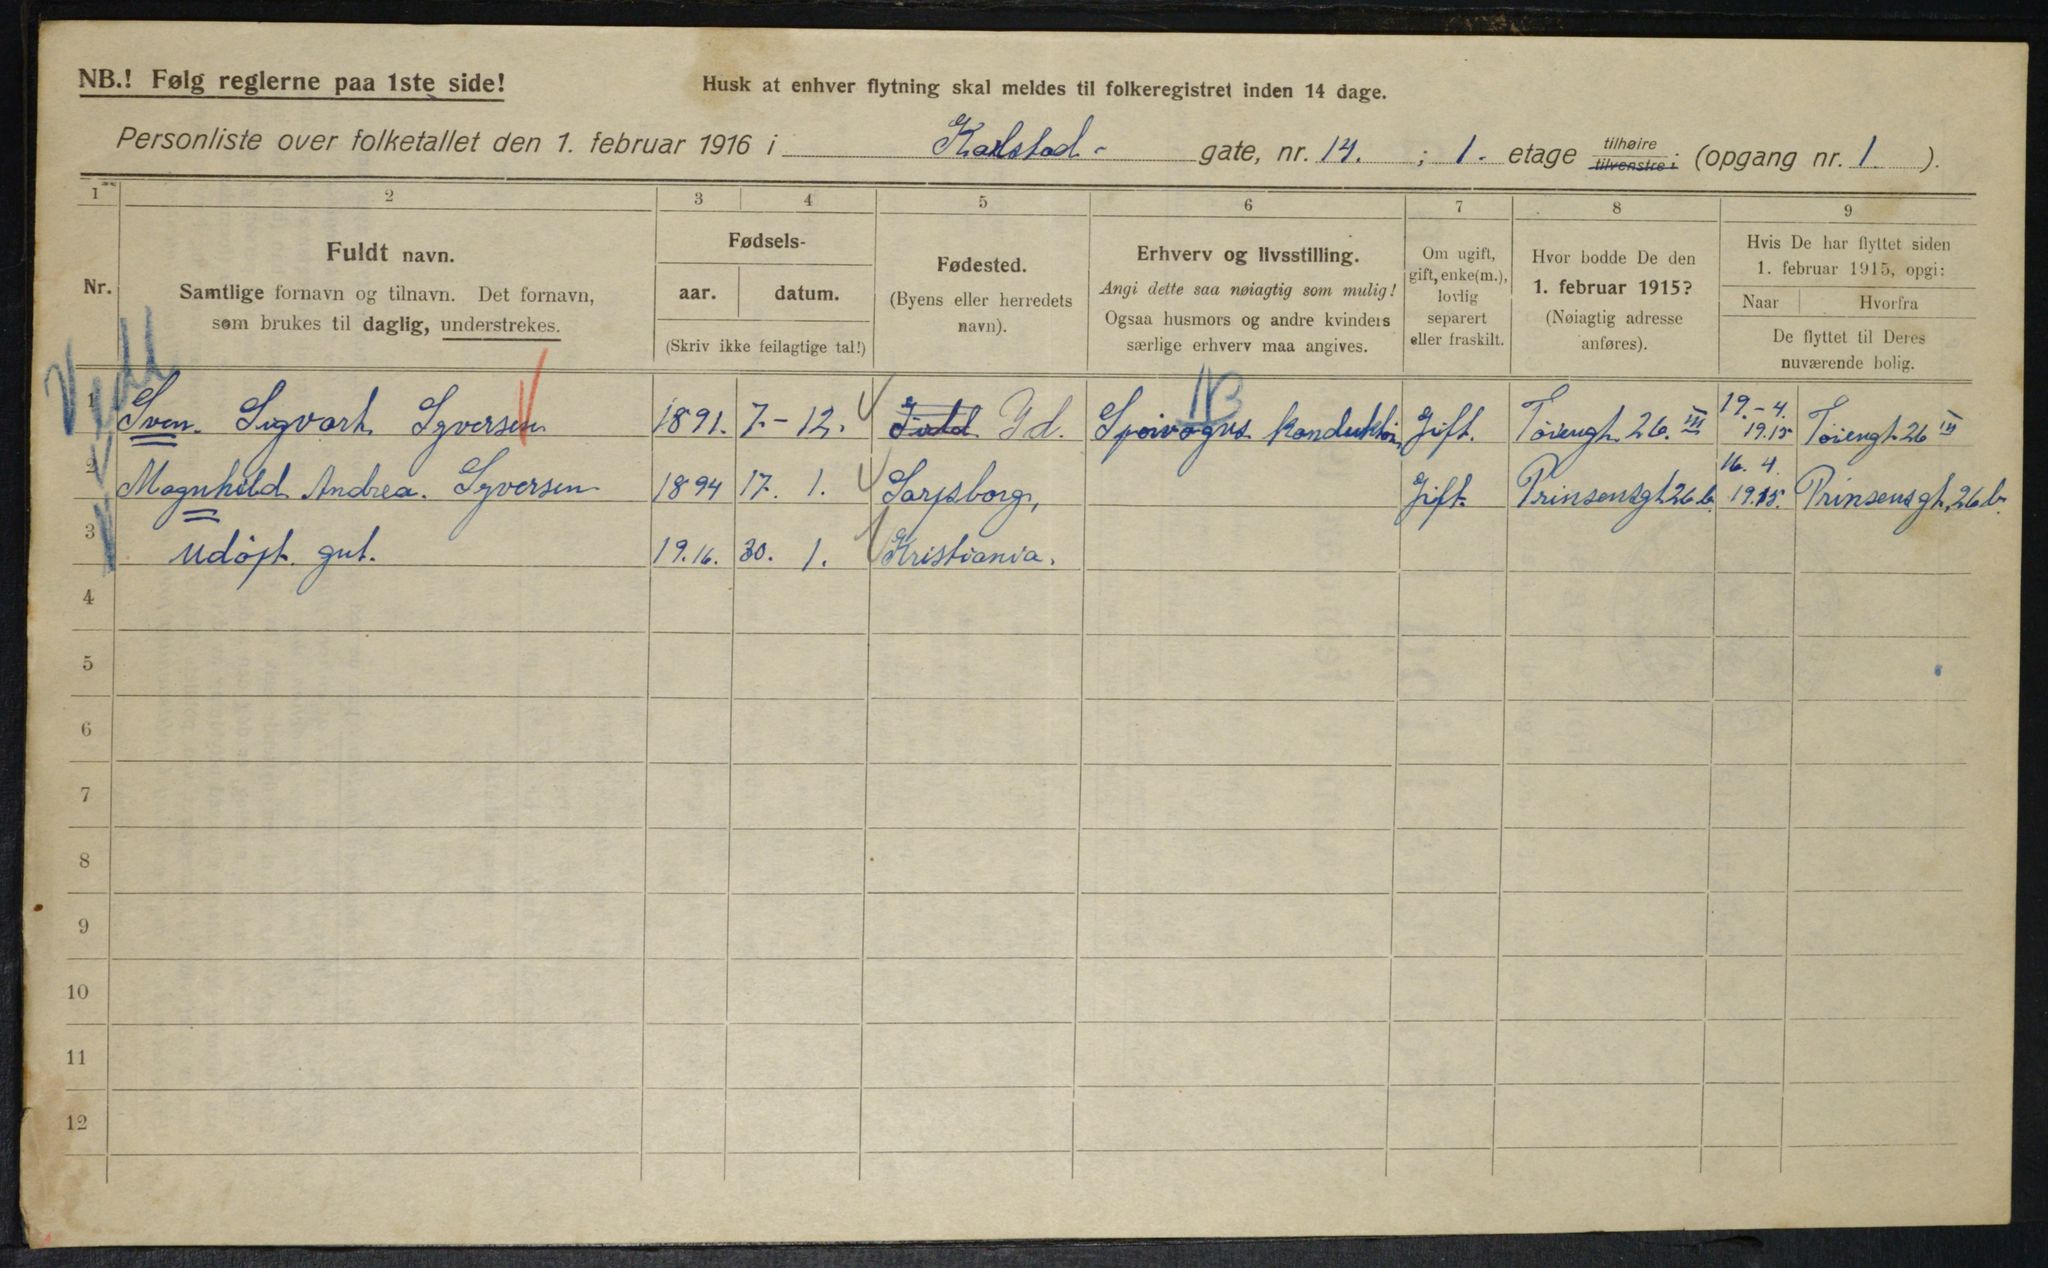 NB.! Følg reglerne paa 1ste side! Husk at enhver flytning skal meldes til folkeregistret inden 14 dage.
Personliste over folketallet den 1. februar 1916 i Karlstad- gate, nr. 14. ; 1. etage tilhøire tilvenstre (opgang nr. 1 ).
1 2 3 4 5 6 7 8 9
Nr.
Fuldt navn.
Samtlige fornavn og tilnavn. Det fornavn,
som brukes til daglig, understrekes.
Fødsels-
aar. datum.
(Skriv ikke feilagtige tal!)
Fødested.
(Byens eller herredets
navn).
Erhverv og livsstilling.
Angi dette saa nøiagtig som mulig!
Ogsaa husmors og andre kvinders
særlige erhverv maa angives.
Om ugift,
gift, enke(m.),
lovlig
separert
eller fraskilt.
Hvor bodde De den
1. februar 1915?
(Nøiagtig adresse
anføres).
Hvis De har flyttet siden
1. februar 1915, opgi:
Naar Hvorfra
De flyttet til Deres
nuværende bolig.
1 Sven. Sigvart Syversen 1891. 7-12. Id. Sporvogns konduktør Gift. Tøiengt. 26. III 19.-4. 1915 Tøiengt. 26 III
2 Magnhild Andrea. Syversen 1894 17. 1. Sarpsborg, Gift. Prinsensgt. 26 b. 16. 4. 1915. Prinsensgt. 26 b.
3 Udøpt. gut. 19.16. 30. 1. Kristiania.
4
5
6
7
8
9
10
11
12